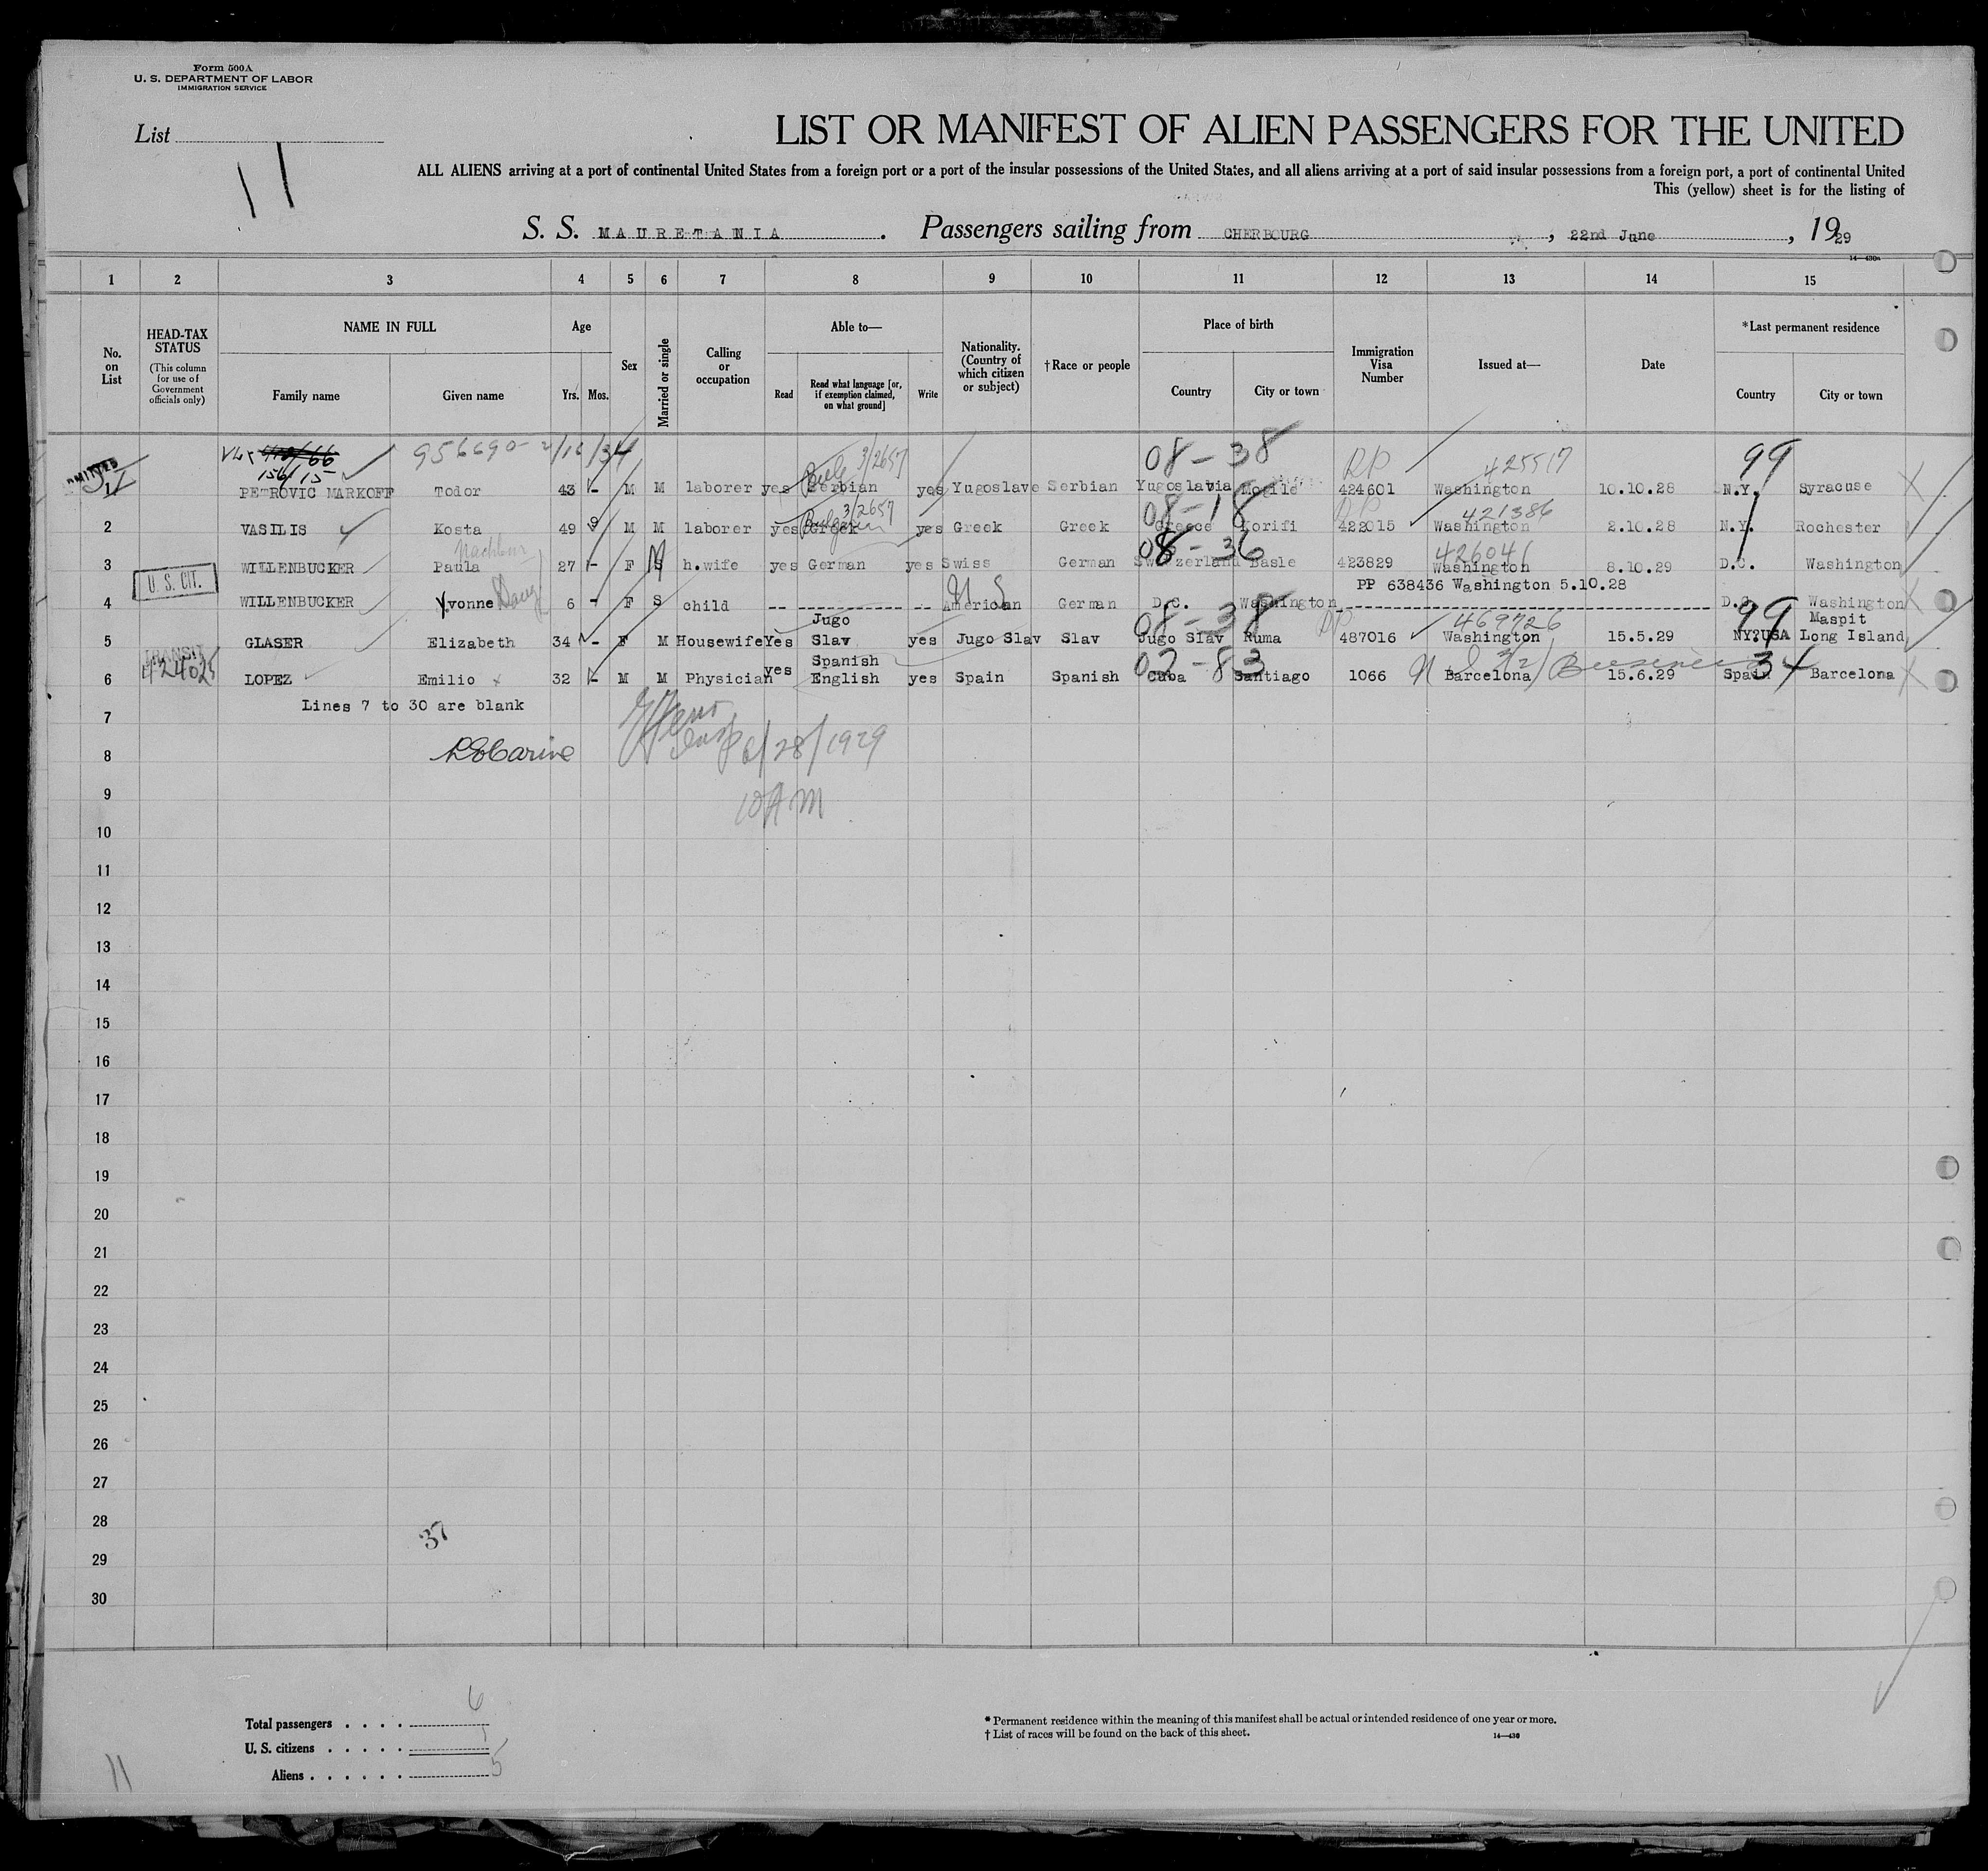 Form 500A
U. S. DEPARTMENT OF LABOR
IMMIGRATION SERVICE
List
11
LIST OR MANIFEST OF ALIEN PASSENGERS FOR THE UNITED
ALL ALIENS arriving at a port of continental United States from a foreign port or a port of the insular possessions of the United States, and all aliens arriving at a port of said insular possessions from a foreign port, a port of continental United
This (yellow) sheet is for the listing of
S. S. MAURETANIA. Passengers sailing from CHERBOURG, 22nd June, 1929
14—430a
1 2 3 4 5 6 7 8 9 10 11 12 13 14 15
No. on List
HEAD-TAX STATUS
(This column for use of Government officials only)
NAME IN FULL
Family name Given name
Age
Yrs. Mos.
Sex
Married or single
Calling or occupation
Able to—
Read
Read what language [or, if exemption claimed, on what ground]
Write
Nationality. (Country of which citizen or subject)
†Race or people
Place of birth
Country City or town
Immigration Visa Number
Issued at—
Date
*Last permanent residence
Country City or town
156/15 956690- 2/16/34 3/2657 08-38 RP 425517 99
1 PETROVIC MARKOFF Todor 43 - M M laborer yes Serbian yes Yugoslave Serbian Yugoslavia Mogile 424601 Washington 10.10.28 N.Y. Syracuse
3/2657 08-18 RP 421386
2 VASILIS Kosta 49 9 M M laborer yes Greek yes Greek Greek Greece Korifi 422015 Washington 2.10.28 N.Y. Rochester
08-36 426041
3 WILLENBUCKER Paula 27 - F S M h.wife yes German yes Swiss German Switzerland Basle 423829 Washington 8.10.29 D.C. Washington
U. S. CIT.
PP 638436 Washington 5.10.28
4 WILLENBUCKER Yvonne 6 - F S child -- -- American U S German D.C. Washington D.C. Washington
08-38 RP 469726 99
5 GLASER Elizabeth 34 - F M Housewife Yes Jugo Slav yes Jugo Slav Slav Jugo Slav Ruma 487016 Washington 15.5.29 NY.USA Maspit Long Island
TRANSIT
424025 02-83 34
6 LOPEZ Emilio 32 - M M Physician yes Spanish English yes Spain Spanish Cuba Santiago 1066 Barcelona 15.6.29 Spain Barcelona
Lines 7 to 30 are blank
7
8
6/28/1929
9
10 AM
10
11
12
13
14
15
16
17
18
19
20
21
22
23
24
25
26
27
28
37
29
30
Total passengers . . . . 6
U. S. citizens . . . . . 1
Aliens . . . . . . 5
11
* Permanent residence within the meaning of this manifest shall be actual or intended residence of one year or more.
† List of races will be found on the back of this sheet.
14—430